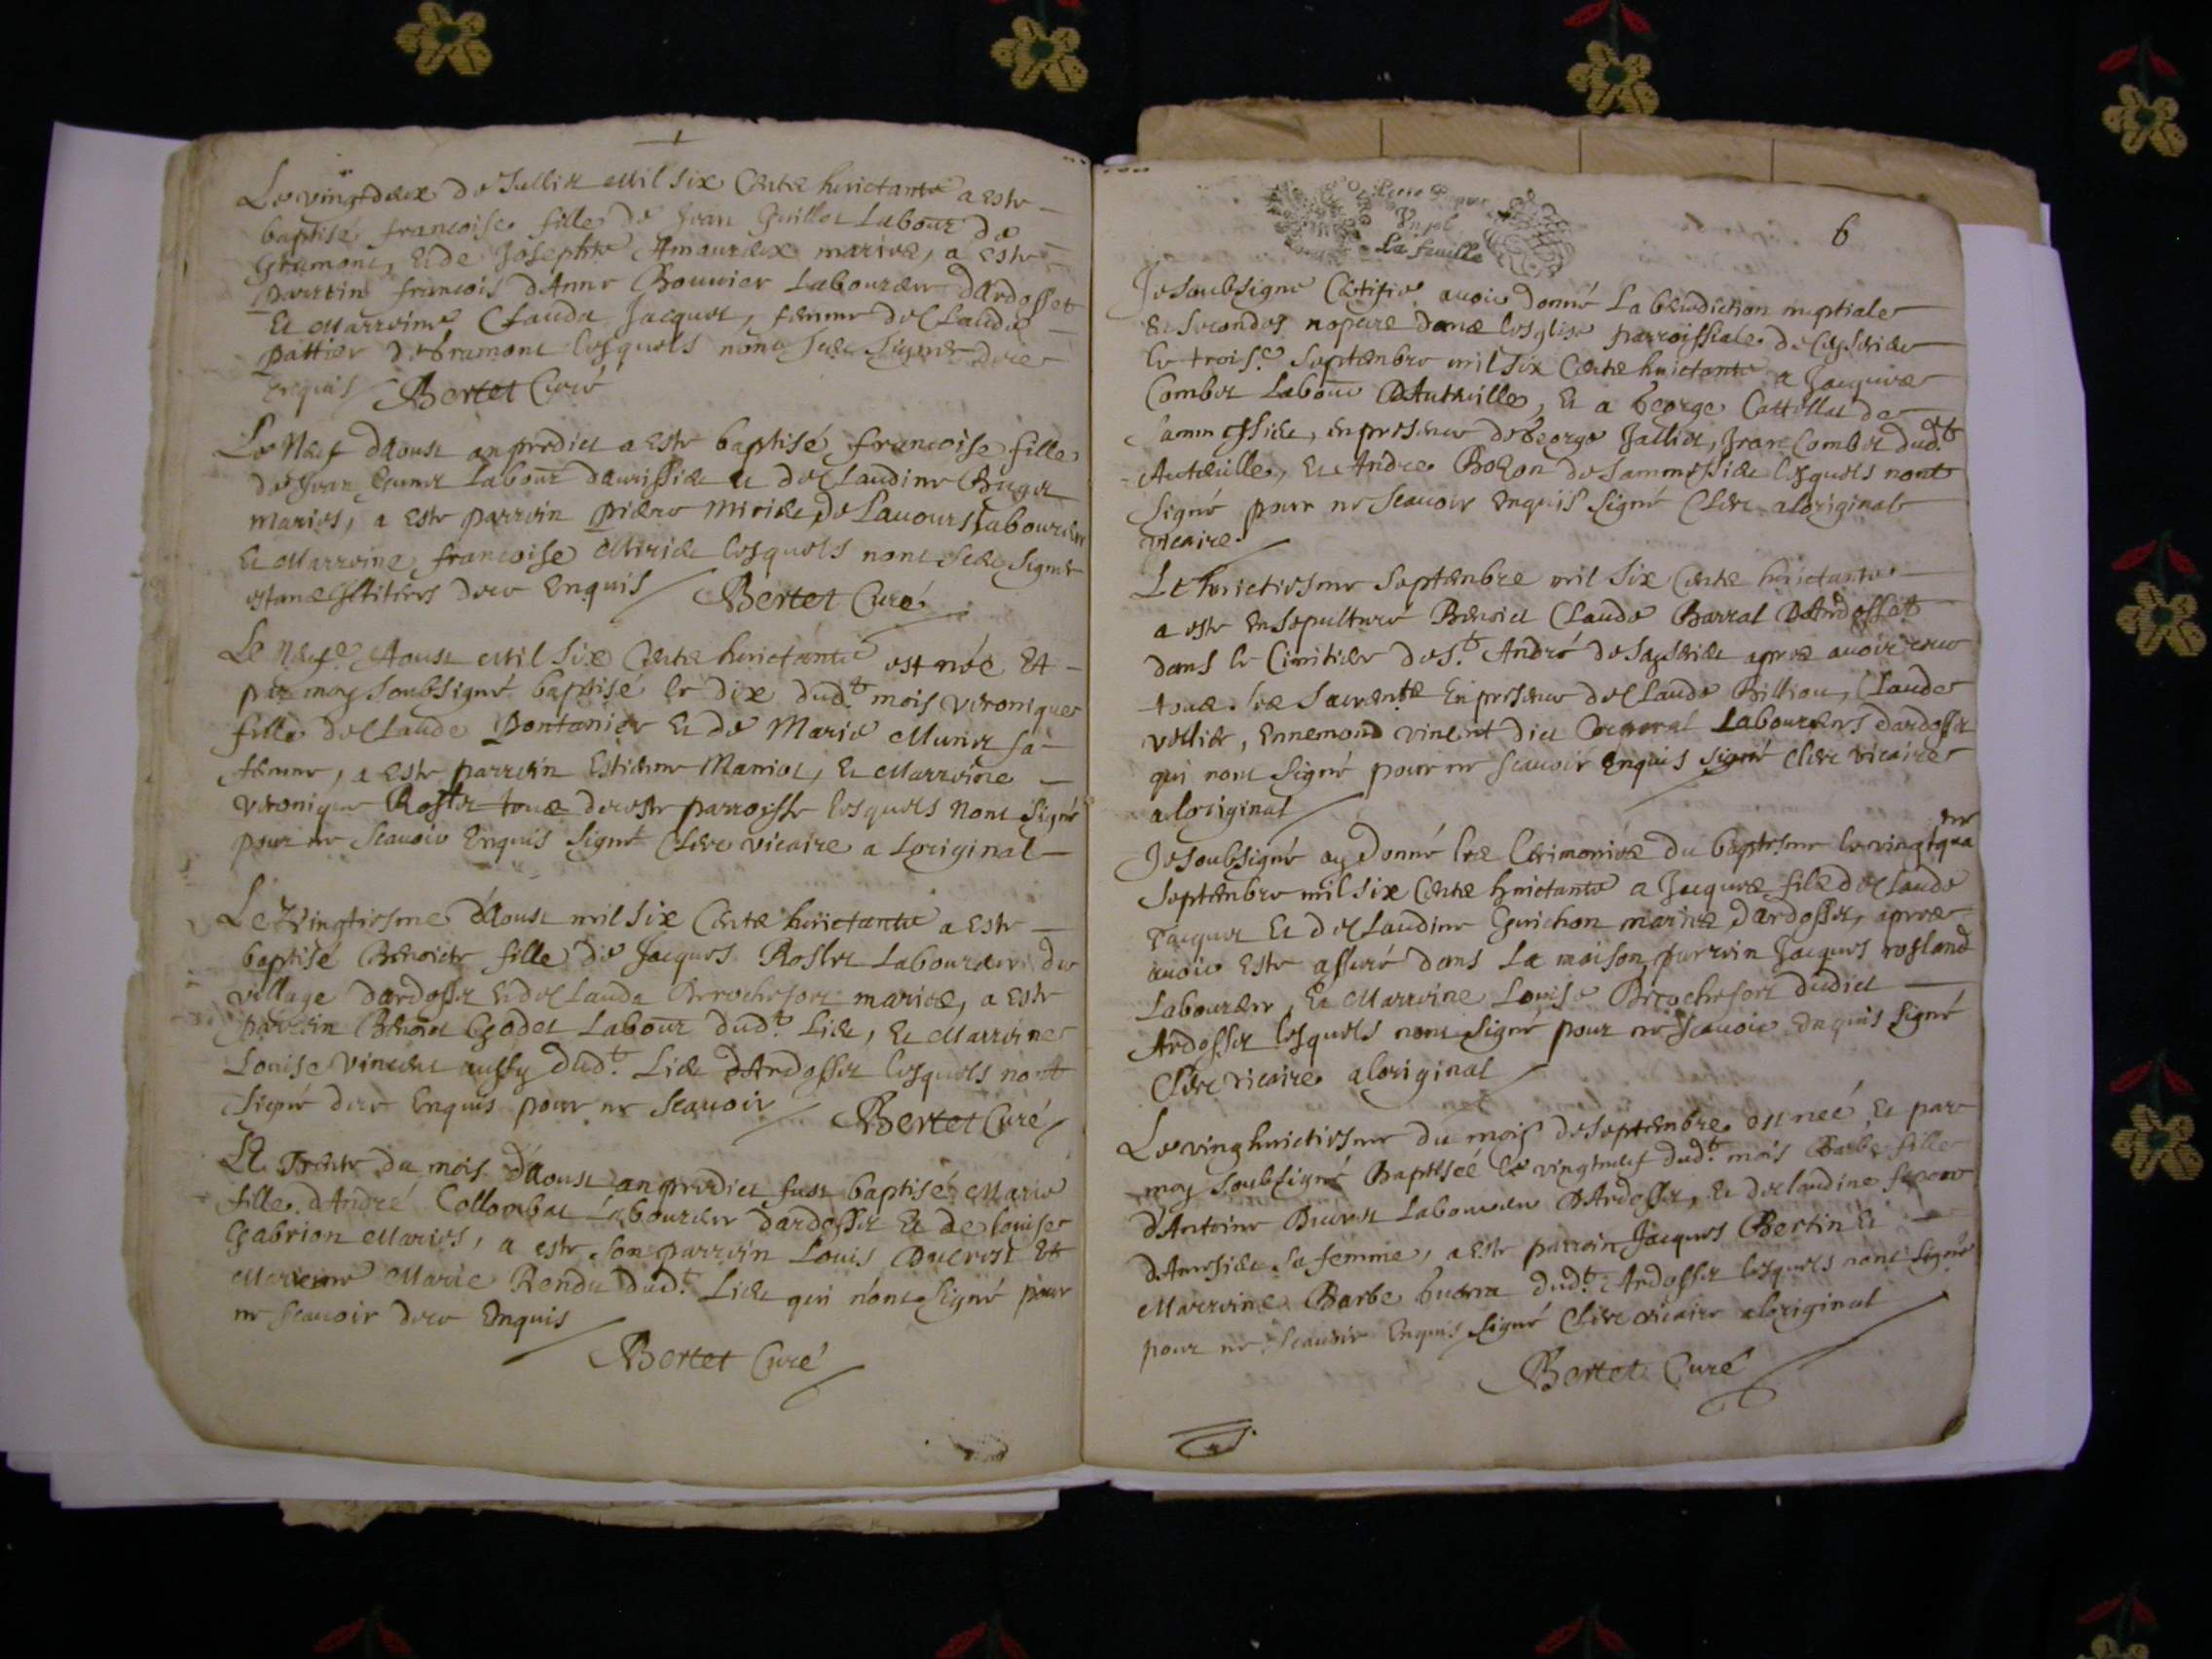 Le vingt deux de Jullict Mil Six Cents huictante a Este
baptisé francoise fille de Jean Guillot Labour de
Gramont, Et de Josephte Amaurdex maries, a Este
parrein francois d'Anne Bouuier Laboureur dArdosset
Et Marreine Clauda Jacquet, femme de Claude
pattier de Gramont lesquels nont sceu signer de ce
enquis Bertet Curé
Le Neuf dAoust an predict a Este baptisé francoise fille
de Jean Labour Et de Claudine
maries, a Este parrein piere de Lauours Laboureur
Et Marreine francoise lesquels nont sceu Signer
estans Illitters de ce Enquis Bertet Curé
Le Neufe Aoust Mil Six Cents huictante est née Et
par moy Soubsigné baptisé le dix dud.t mois veronique
fille de Claude Pontanier Et de Marie Munet sa
femme, a Este parrein Estienne Maniot, Et Marreine
veronique Rosset tous de ceste parroisse lesquels Nont Signé
pour ne scauoir Enquis Signé Clerc vicaire a Loriginal
Le Vingtiesme dAoust mil Six Cents huictante a Este
baptisé Benoite fille de Jacques Roslet Laboureur du
village dardosset Et de Clauda Brrochefort maries, a Este
parrein Benoict Godet Labour dud.t Lieu, Et Marreine
Louise vincent aussy dud.t Lieu dArdosset lesquels nont
Signé de ce Enquis pour ne scauoir Bertet Curé
Le Trente du mois dAoust an predict fust baptisé Marie
fille dAndré Collombat Laboureur dardosset Et de louise
Gabrion Maries, a este son parrein Louis Ducrest Et
Mareine Marie Rendu dud.t Lieu qui nont Signé pour
ne scauoir de ce Enquis
Bertet Curé
6
Un sol
La feuille
Je soubsigné Certifie auoir donné La benediction nuptiale
En secondes nopces dans lesglise parroissiale de Ceyserieu
le trois.e Septembre mil Six Cents huictante a Jacques
Combet Labour DAutreuille, Et a George Cattillat de
En presence de George Jallict, Jean Combet dud.t
Autreuille, Et Andre Bozon de lesquels nont
Signé pour ne scauoir Enquis Signé Clerc a loriginal
vicaire
Le huictiesme Septembre mil Six Cents huictante
a este Ensepulturé Benoict Claude Barral DArdosset
dans le Cimitiere de S.t André de Sayserieu apres auoir receu
tous les Sacrents En presence de Claude Billion, Claude
vellier, Ennemond vincent dict Laboureurs dardosset
qui nont Signé pour ne scauoir Enquis Signé Clerc vicaire
a loriginal
Je soubsigné ay donné les Cerimonies du baptesme le vingt qua
tre
Septembre mil six Cents huictante a Jacques fils de Claude
Jacquet Et de Claudine Guichon maries dardosset, apres
auoir Este assuré dans La maison, parrein Jacques rosland
Laboureur, Et Marreine Louise Brrochefort dudict
Ardosset lesquels nont Signé pour ne scauoir Enquis Signé
Clerc vicaire a loriginal
Le vinghuictiesme du mois de Septembre est neé, Et par
moy Soubsigné Baptiseé le vingtneuf dud.t mois Barbe fille
dAntoine Laboureur DArdosset, Et de Claudine
sa femme, a Este parrein Jacques Bertin Et
Marreine Barbe dud.t Ardosset lesquels nont Signé
pour ne scauoir Enquis Signé Clerc vicaire a loriginal
Bertet Curé